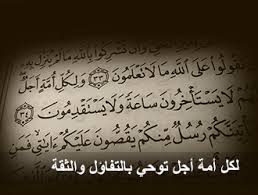 تُشْرِكُوا۟ بِٱللَّهِ مَا لَمْ يُنَزِّلْ بِهِ
تَقُولُوا۟ عَلَى ٱللَّهِ مَا لَا تَعْلَمُونَ ٣٣ وَلِكُلِّ أُمَّةٍ أَجَلٌ
لَا يَسْتَأْخِرُونَ سَاعَةً وَلَا يَسْتَقْدِمُونَ ٣٤
يَأْتِيَنَّكُمْ رُسُلٌ مِّنكُمْ يَقُصُّونَ عَلَيْكُمْ ءَايَٰتِى فَمَنِ
لكل أمة أجل توحي بالتفاؤل والثقة